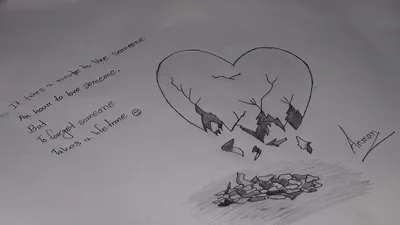 It takes a minute to like someone
An hour to love someone.
But
To forget someone
Takes a lifetime ☹
Arman